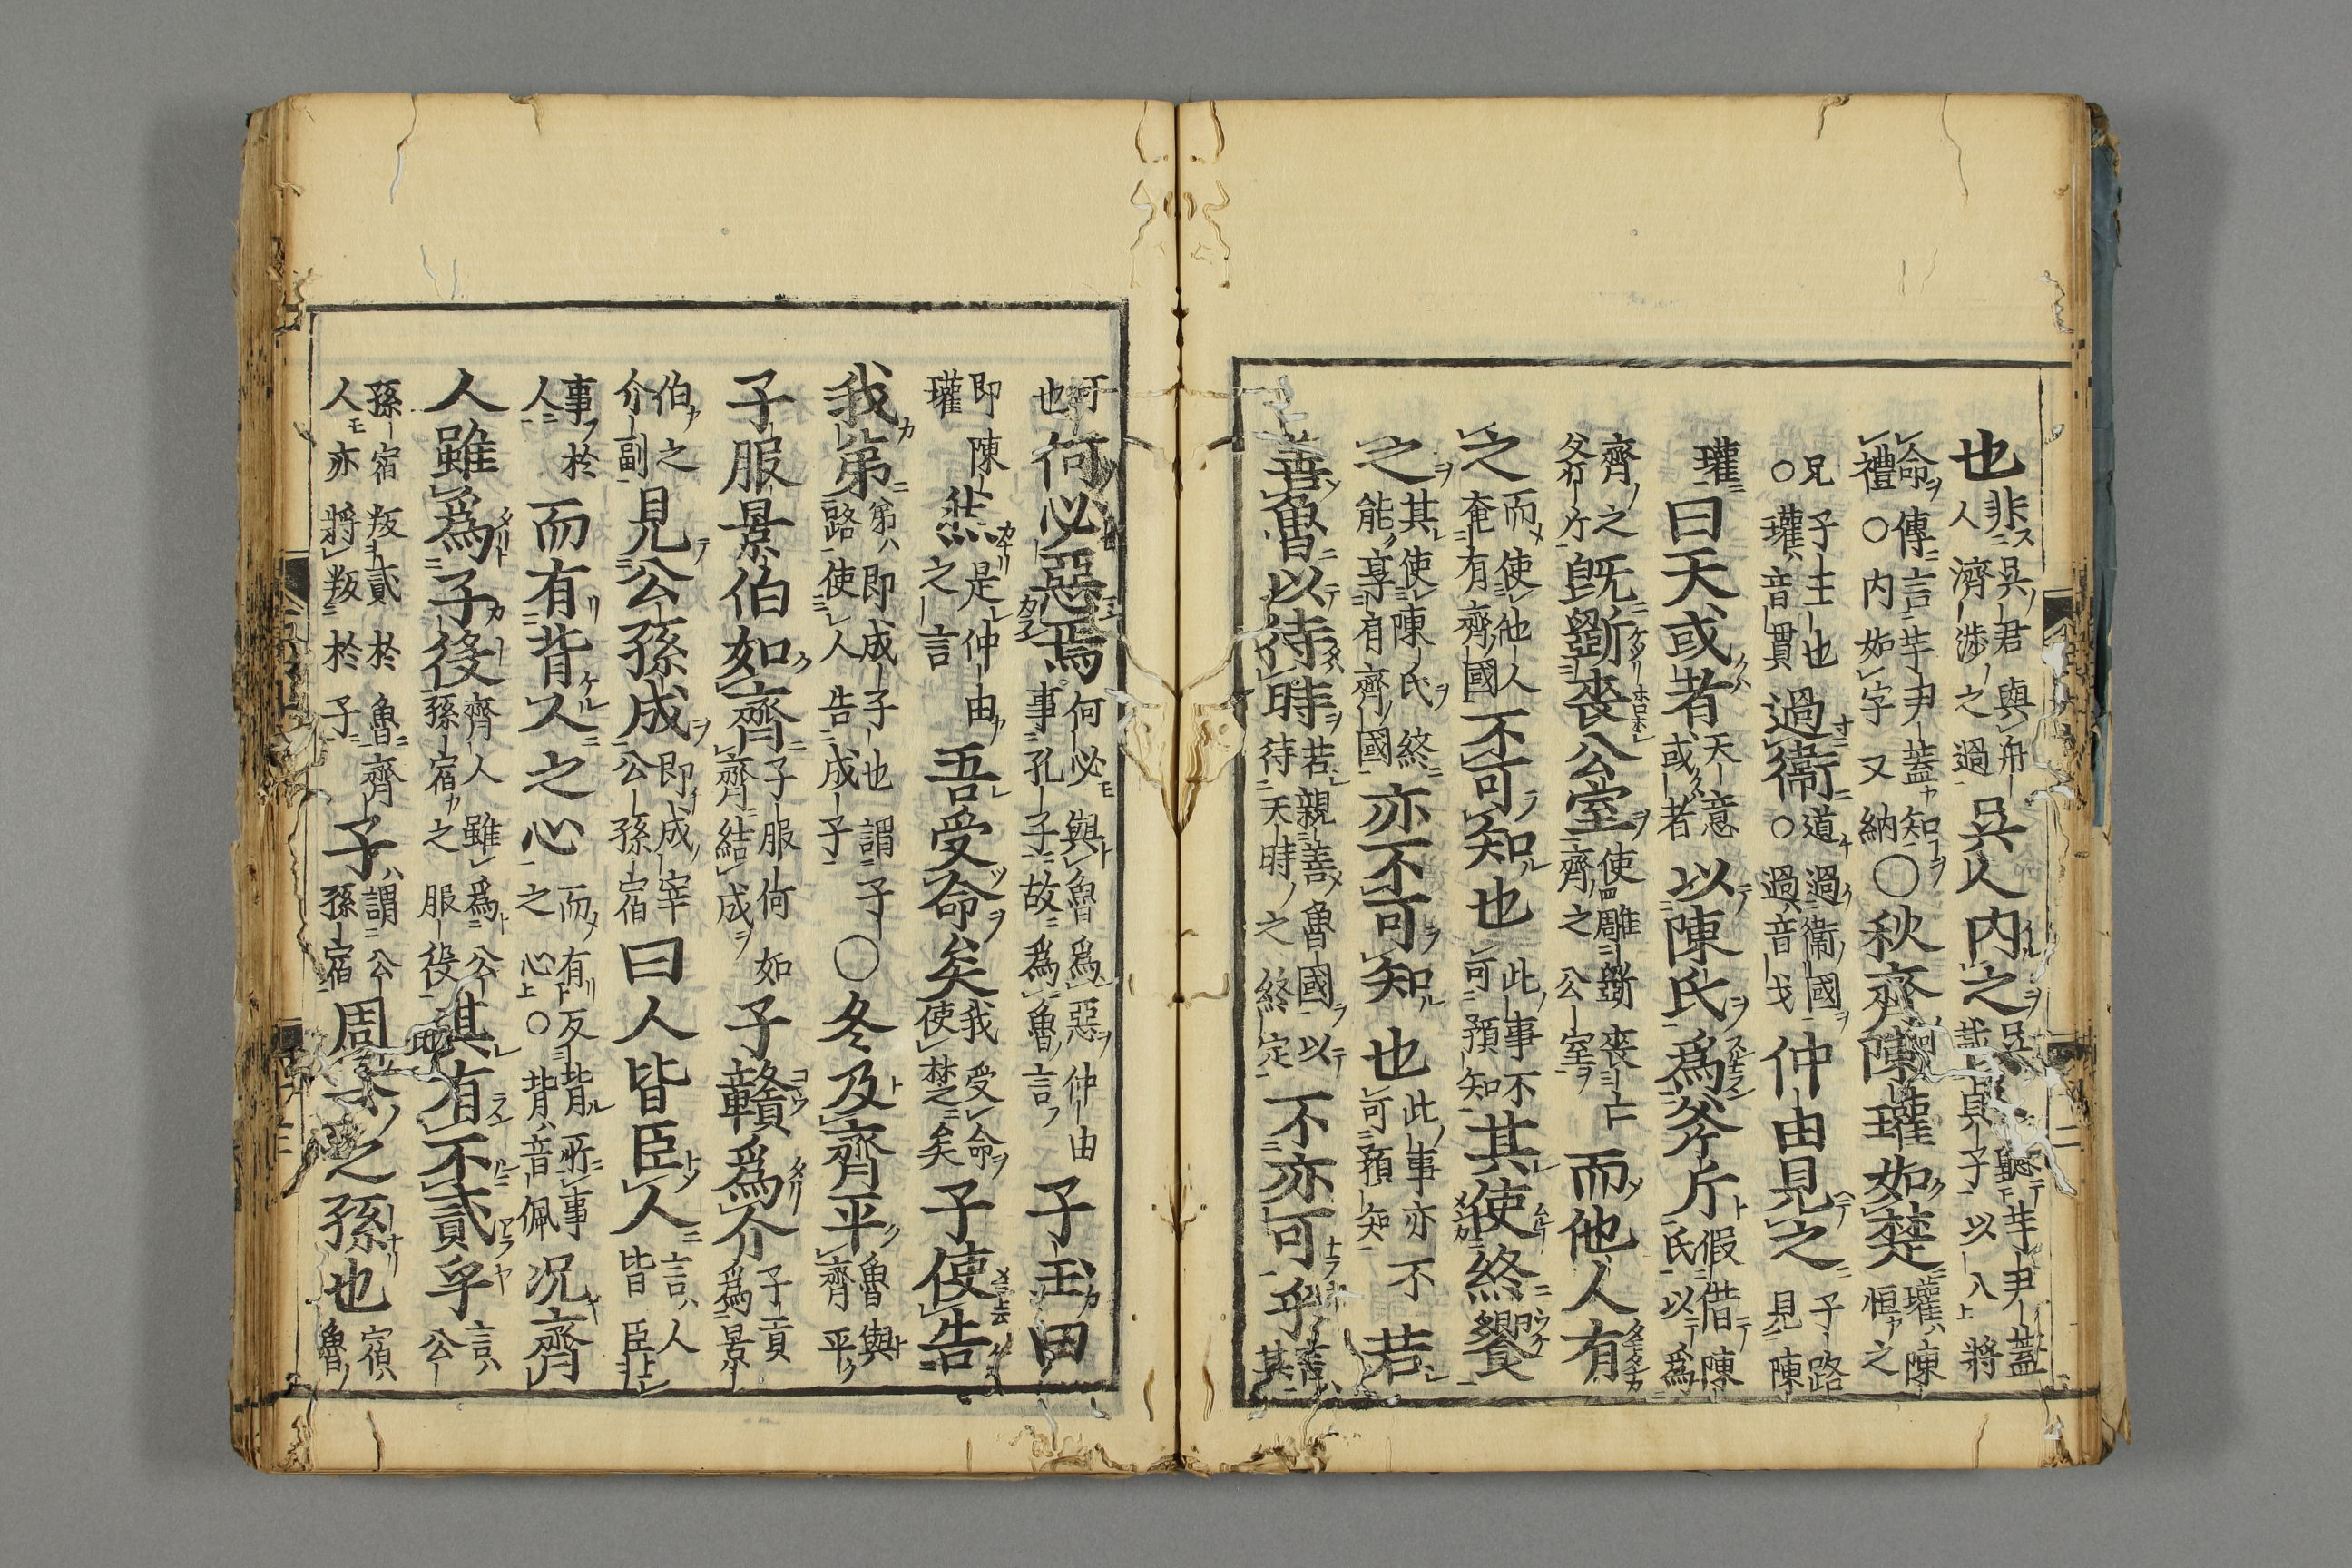 也非吳君與舟人濟涉之過吳人内之吳聽芋尹蓋貞子以入將
命傳言芋尹蓋知禮○内如字又納○秋齊陳瓘如楚瓘陳恒之
兄子玉也○瓘音貫過衞道過衞國○過音戈仲由見之子路見陳
瓘曰天或者天意或者以陳氏爲斧斤假借陳氏以爲
齊之斧斤既斵喪公室使雕斵喪亡齊之公室而他人有
之而使他人奄有齊國不可知也此事不可預知其使終饗
之其使陳氏終能享有齊國亦不可知也此事亦可預知不若
善魯以待時若親善魯國以待天時之終定不亦可乎其
何也何必惡焉何必與魯爲惡仲由事孔子故爲魯言子玉曰
即陳瓘然是仲由之言吾受命矣我受命使楚矣子使告
我弟弟即成子也謂子路使人告成子○冬及齊平魯與齊平
子服景伯如齊子服何如齊結成子贛爲介子貢爲景
伯之介副見公孫成即成宰公孫宿曰人皆臣人言人皆臣
事於人而有背人之心而有反背所事之心上○背音佩况齊
人雖爲子役齊人雖爲公孫宿之服役其有不貳乎言公
孫宿叛貳於魯齊人亦將叛於子子謂公孫宿周公之孫也宿魯